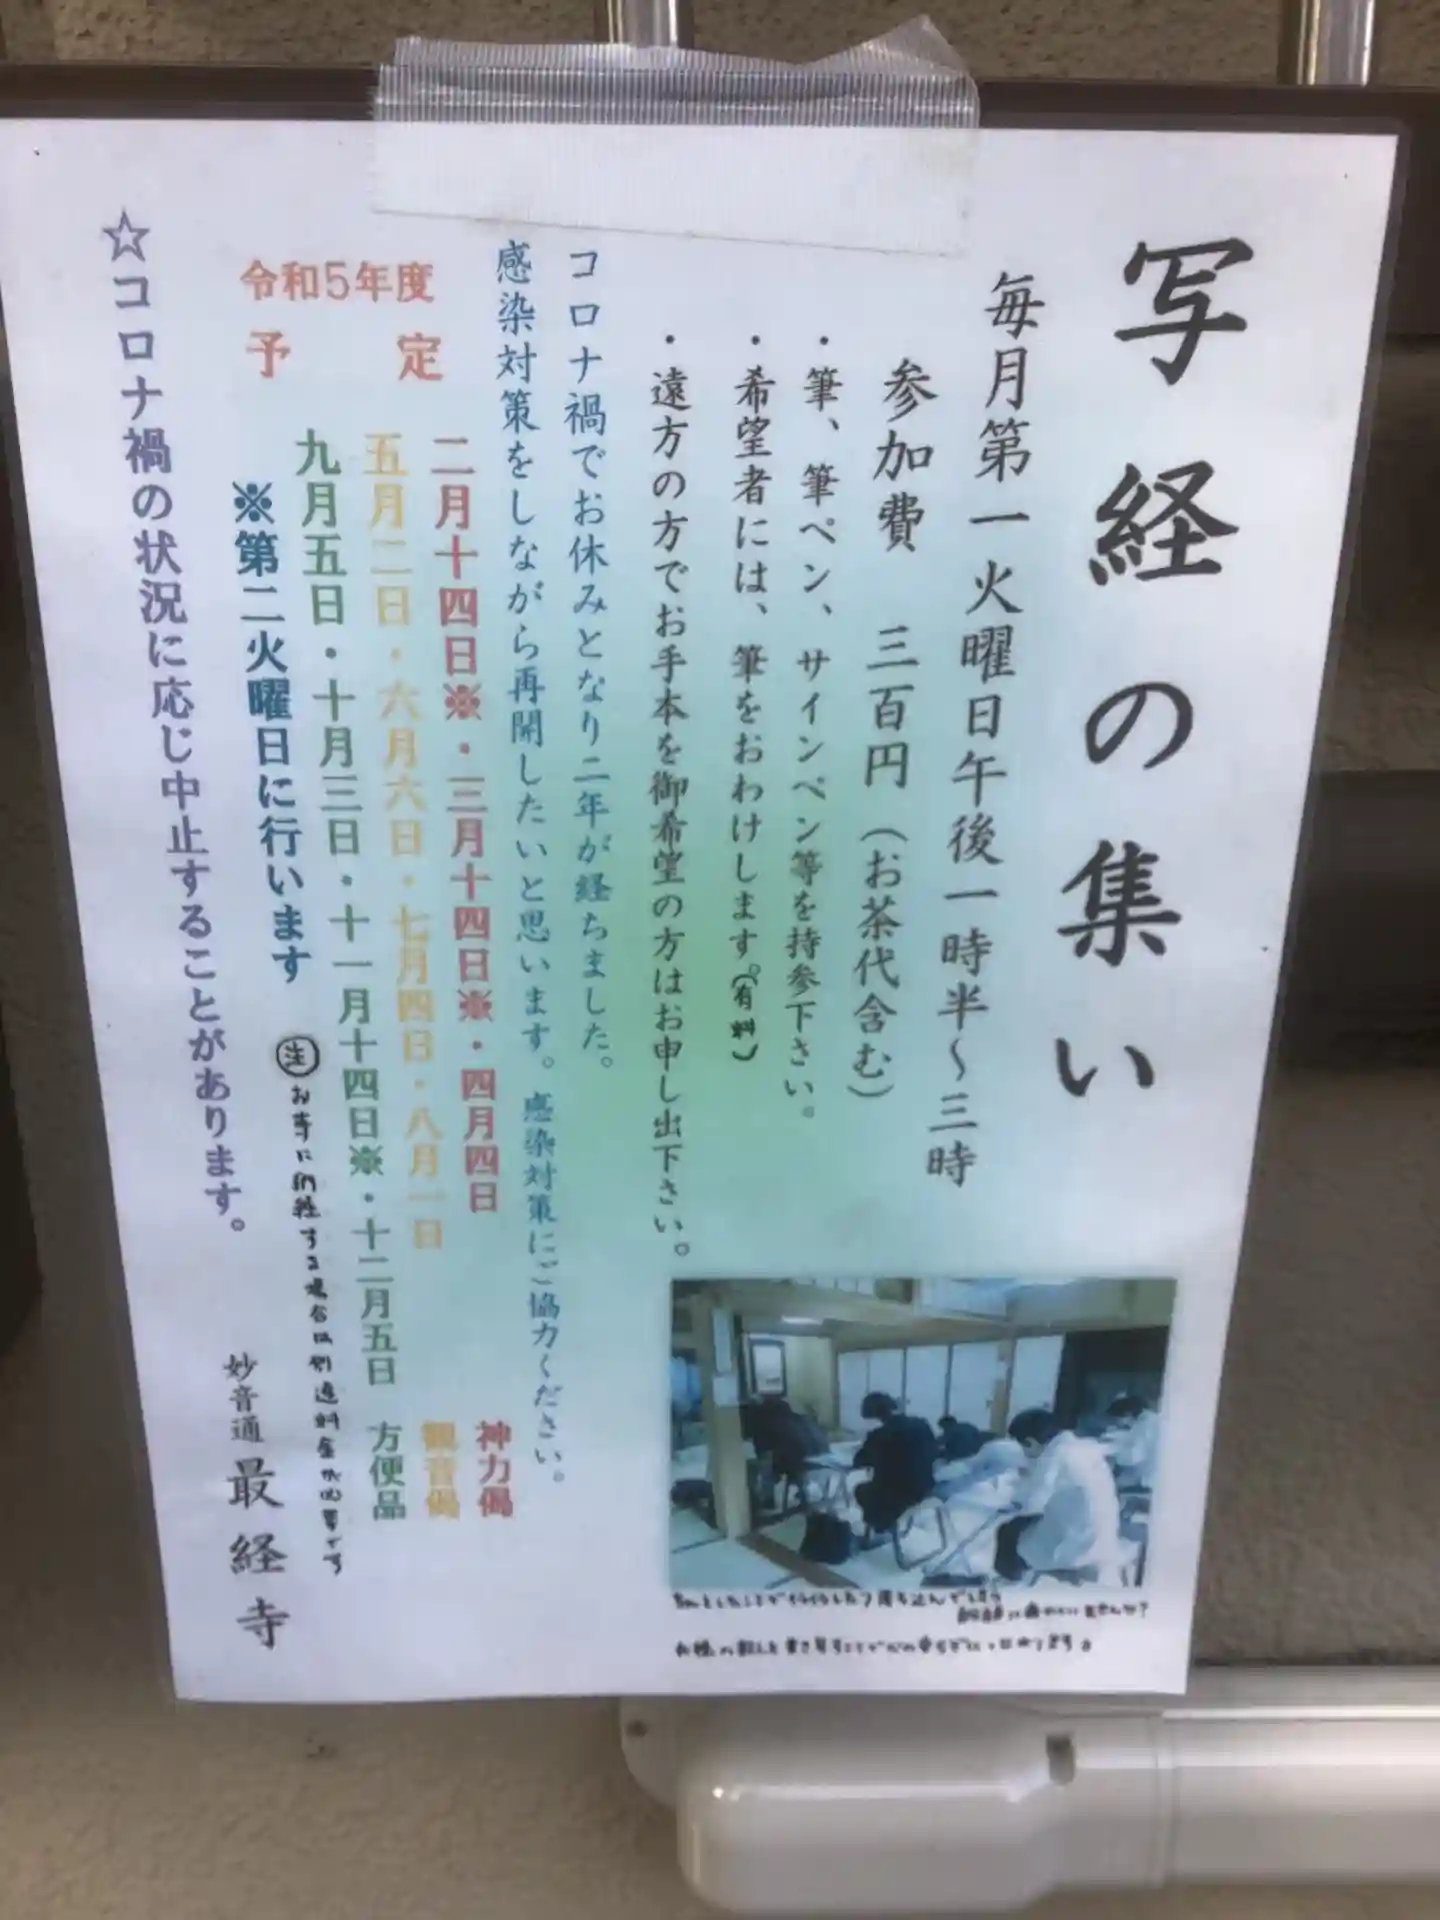 写経の集い
毎月第一火曜日午後一時半～三時
参加費 三百円（お茶代含む）
・筆、筆ペン、サインペン等を持参下さい。
・希望者には、筆をおわけします。（有料）
・遠方の方でお手本を御希望の方はお申し出下さい。
コロナ禍でお休みとなり二年が経ちました。
感染対策をしながら再開したいと思います。感染対策にご協力ください。
令和5年度
予定
二月十四日※・三月十四日※・四月四日 神力偈
五月二日・六月六日・七月四日・八月一日 観音偈
九月五日・十月三日・十一月十四日※・十二月五日 方便品
※第二火曜日に行います
注 お寺に納経する場合は別途料金が必要です
☆コロナ禍の状況に応じ中止することがあります。
妙音通 最経寺